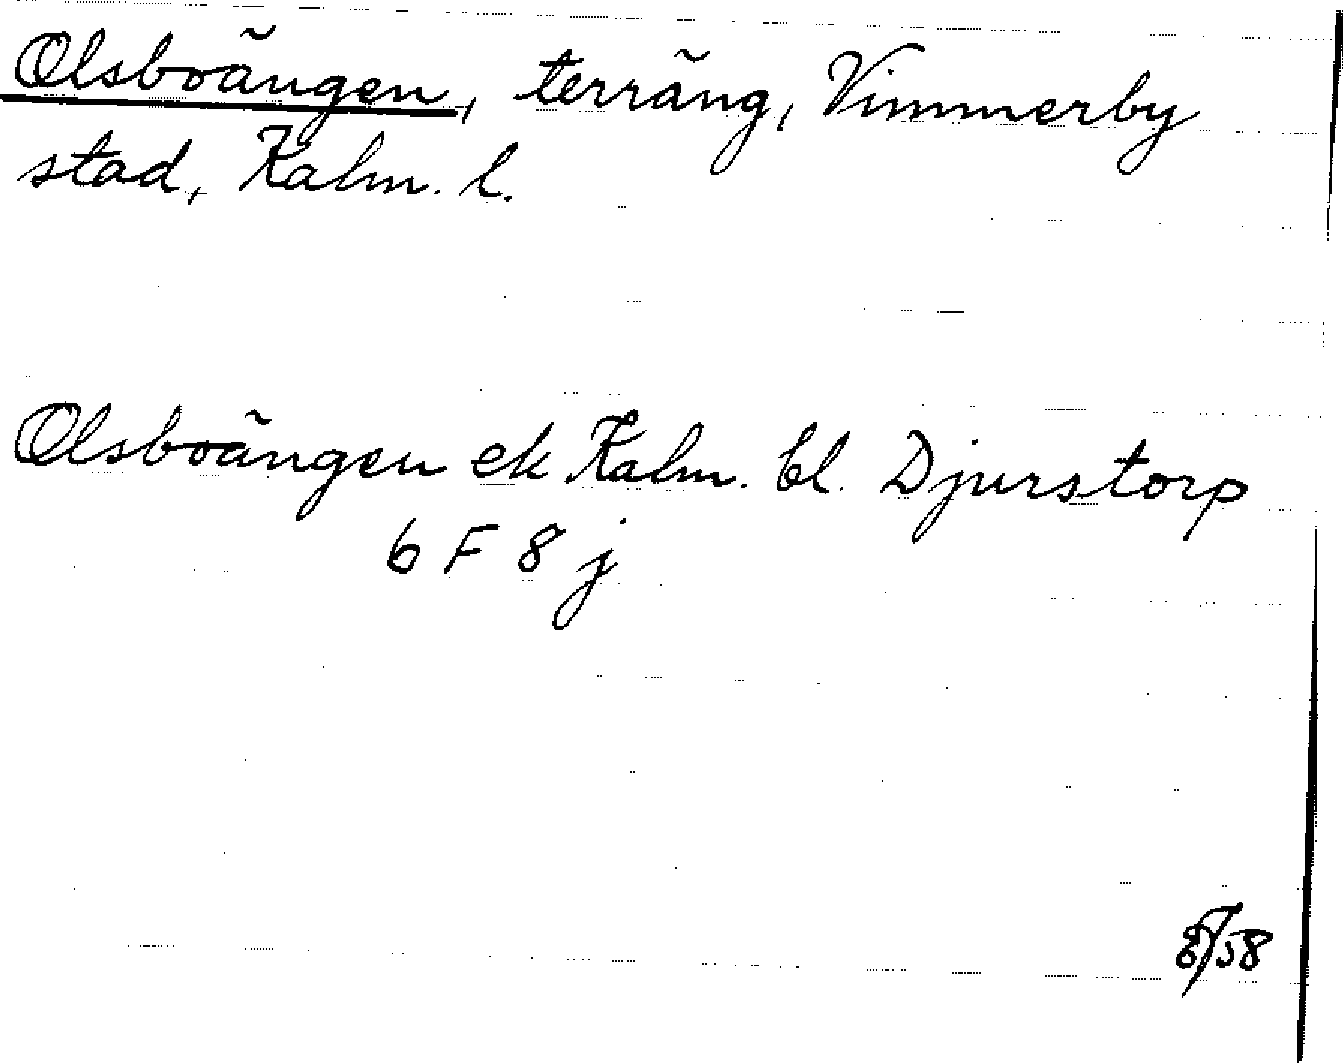 Olsboängen, terräng, Vimmerby
stad, Kalm. l.
Olsboängen ek Kalm. bl. Djurstorp
6 F 8 j